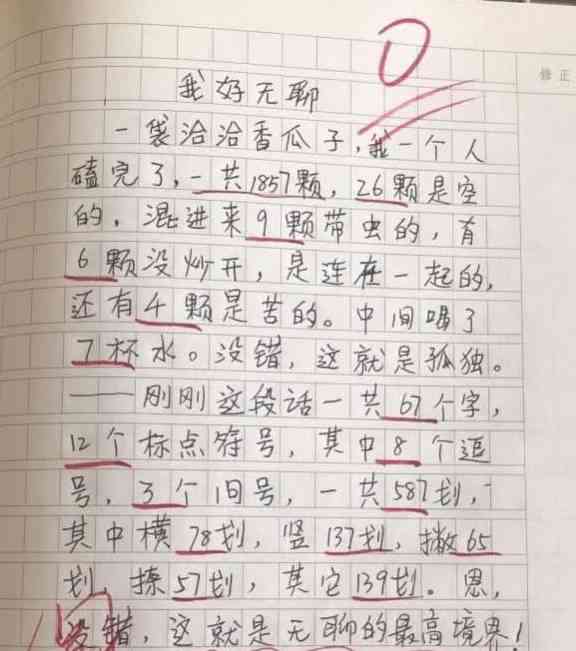 0
修正
我好无聊
一袋洽洽香瓜子,我一个人
磕完了,一共1857颗,26颗是空
的,混进来9颗带虫的,有
6颗没炒开,是连在一起的,
还有4颗是苦的。中间喝了
7杯水。没错,这就是孤独。
——刚刚这段话一共67个字,
12个标点符号,其中8个逗
号,3个句号,一共587划,
其中横78划,竖137划,撇65
划,捺57划,其它139划。恩,
没错,这就是无聊的最高境界!